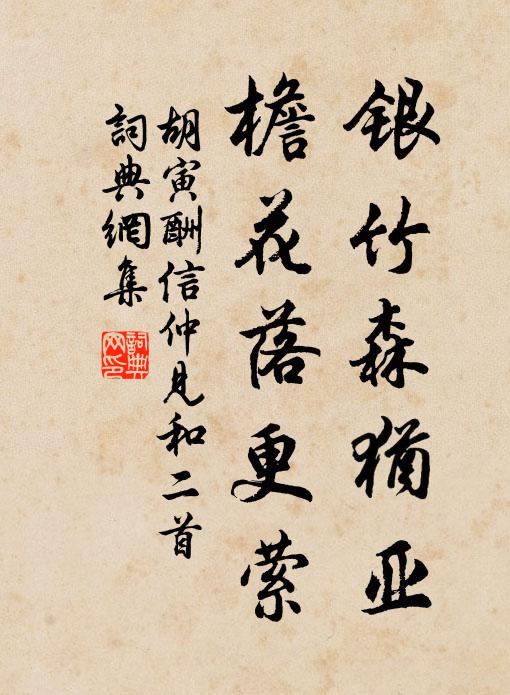 銀竹森猶亚
檐花落更萦
胡寅酬信仲見和二首
詞典網集
詞典网印